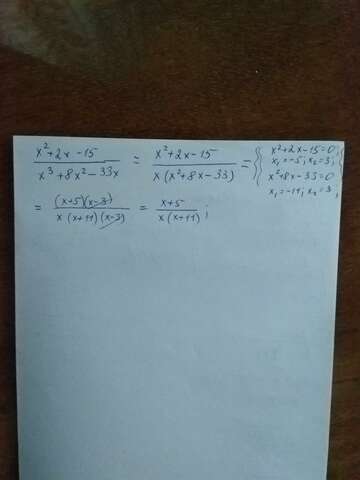 (x²+2x-15)/(x³+8x²-33x) = (x²+2x-15)/(x(x²+8x-33)) = { x²+2x-15=0;
x₁=-5; x₂=3;
x²+8x-33=0
x₁=-11; x₂=3;
= ((x+5)(x-3))/(x(x+11)(x-3)) = (x+5)/(x(x+11));